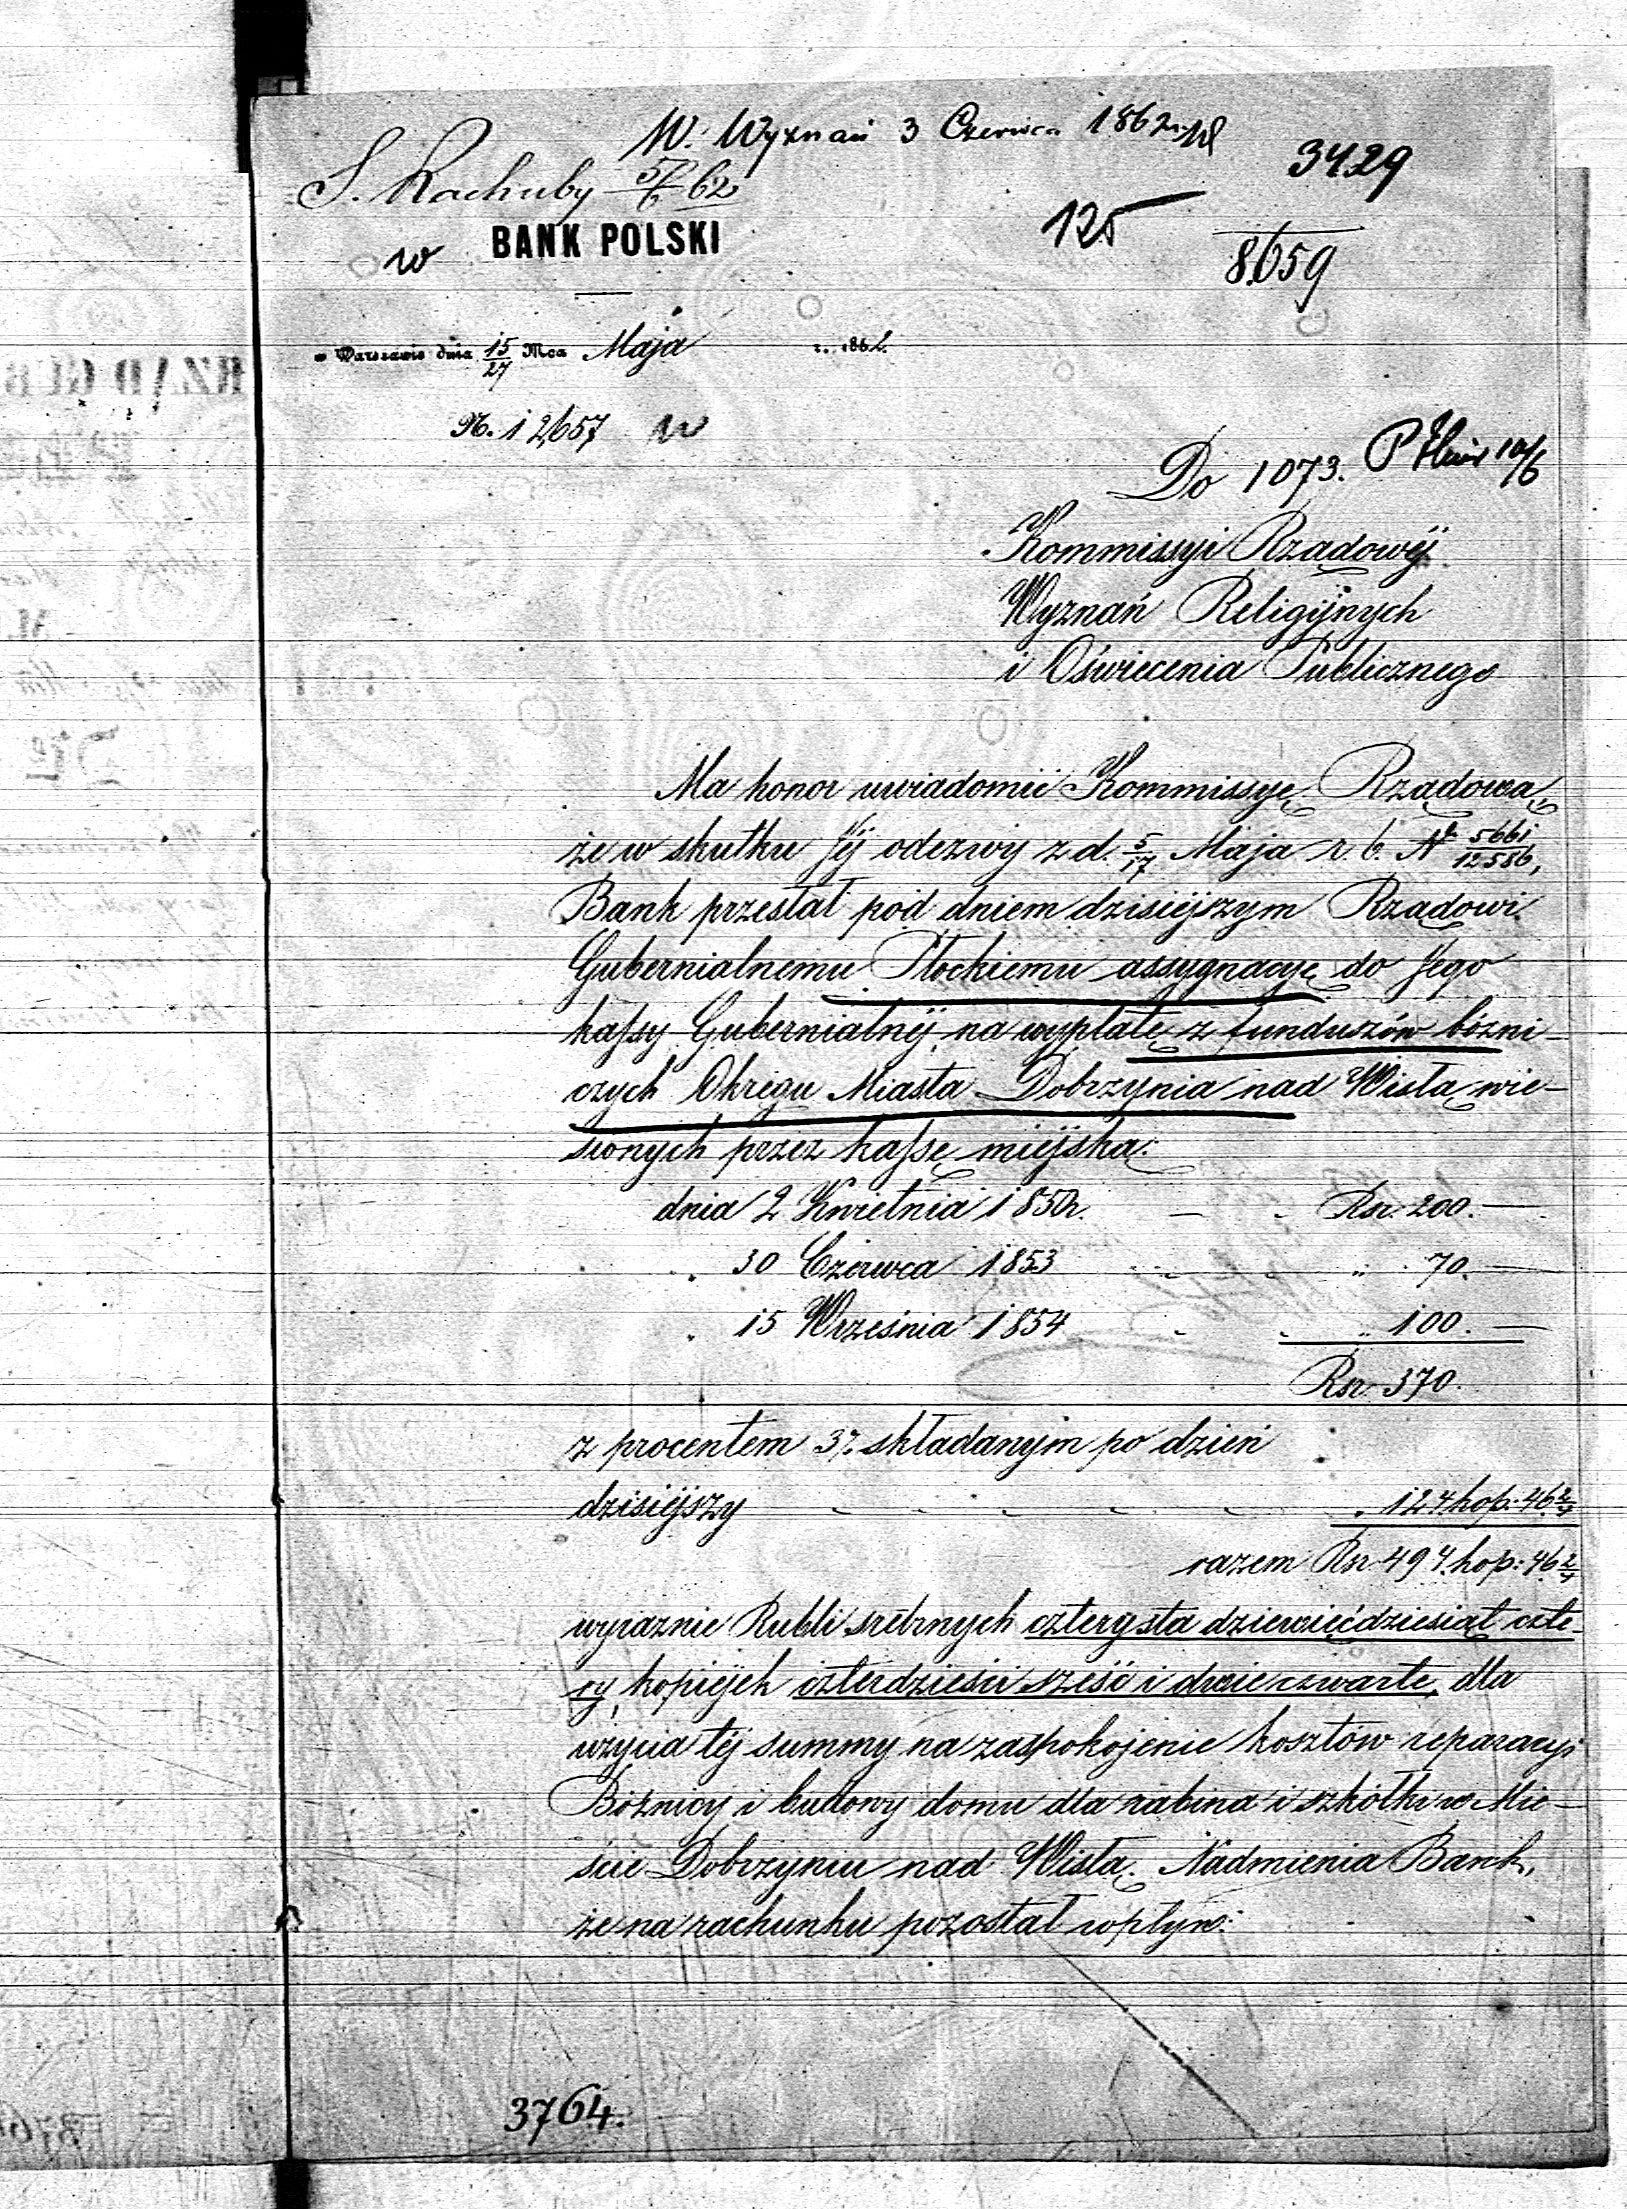 W. Wyznań 3 Czerwca 1862
3429
S. Rachuby 5/6 62
125
8659
w BANK POLSKI
w Warszawie dnia 15/27 Mca Maja r. 1862.
N. 12657
Do 1073. 10/6
Kommissyi Rządowéj
Wyznań Religijnych
i Oświecenia Publicznego
Ma honor uwiadomić Kommissyę Rządową
że w skutku Jéj odezwy z d. 5/17 Maja r. b. N 5661/12586,
Bank przesłał pod dniem dzisiéjszym Rządowi
Gubernialnemu Płockiemu assygnacyę do Jego
kassy Gubernialnéj, na wypłatę z funduszów bóźni-
czych Okręgu Miasta Dobrzynia nad Wisłą wie-
sionych przez kassę miéjską:
dnia 2 Kwietnia 1850 r. — Rsr. 200. —
„ 30 Czerwca 1853 „ 70. —
„ 15 Września 1854 „ 100. —
Rsr. 370.
z procentem 3% składanym po dzień
dzisiéjszy „ 124 kop: 46 2/4
razem Rsr 494 kop: 46 2/4
wyraźnie Rubli srebrnych czterysta dziewięćdziesiąt czte-
ry, kopiéjek czterdzieści sześć i dwie czwarte, dla
użycia téj summy na zaspokojenie kosztów reparacyi
Bóżnicy i budowy domu dla rabina i szkółki w Mie-
ście Dobrzyniu nad Wisłą. Nadmienia Bank,
że na rachunku pozostał wpływ:
3764.